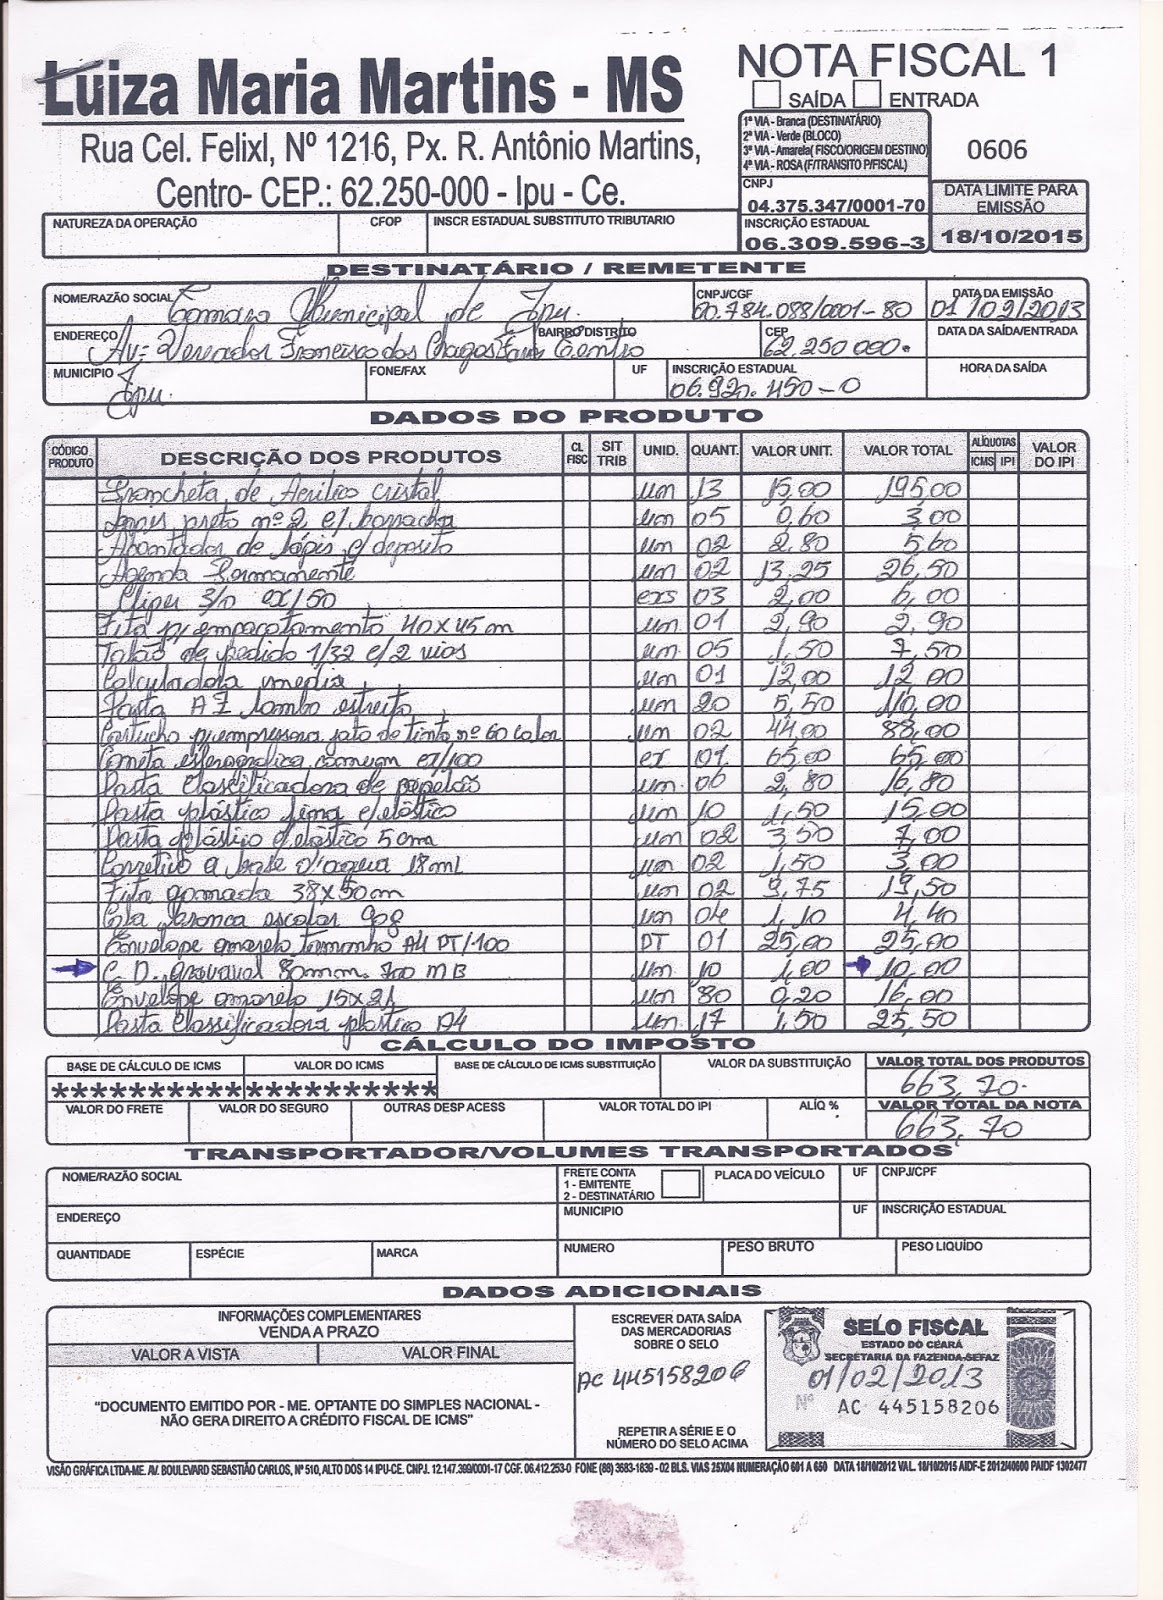 Luiza Maria Martins - MS
Rua Cel. Felixl, Nº 1216, Px. R. Antônio Martins,
Centro- CEP.: 62.250-000 - Ipu - Ce.
NOTA FISCAL 1
SAÍDA ENTRADA
1ª VIA - Branca (DESTINATÁRIO)
2ª VIA - Verde (BLOCO)
3ª VIA - Amarela( FISCO/ORIGEM DESTINO)
4ª VIA - ROSA (F/TRANSITO P/FISCAL)
0606
CNPJ
04.375.347/0001-70
INSCRIÇÃO ESTADUAL
06.309.596-3
DATA LIMITE PARA EMISSÃO
18/10/2015
NATUREZA DA OPERAÇÃO CFOP INSCR ESTADUAL SUBSTITUTO TRIBUTARIO
DESTINATÁRIO / REMETENTE
NOME/RAZÃO SOCIAL Camara Municipal de Ipu. CNPJ/CGF 60.784.088/0001-80 DATA DA EMISSÃO 01/02/2013
ENDEREÇO Av: Vereador Francisco das Chagas Farias BAIRRO/DISTRITO Centro CEP 62.250 000. DATA DA SAÍDA/ENTRADA
MUNICIPIO Ipu. FONE/FAX UF INSCRIÇÃO ESTADUAL 06.920.450-0 HORA DA SAÍDA
DADOS DO PRODUTO
CÓDIGO PRODUTO DESCRIÇÃO DOS PRODUTOS CL FISC SIT TRIB UNID. QUANT. VALOR UNIT. VALOR TOTAL ALÍQUOTAS ICMS IPI VALOR DO IPI
Prancheta de Acrilico cristal um 13 15,00 195,00
Lapis preto nº 2 c/ borracha um 05 0,60 3,00
Apontador de lápis c/ deposito um 02 2,80 5,60
Agenda Permanente um 02 13,25 26,50
Clips 3/0 cx/50 cxs 03 2,00 6,00
Fita p/ empacotamento 40x45m um. 01 2,90 2,90
Talão de pedido 1/32 c/2 vias um. 05 1,50 7,50
Calculadora media um 01 12,00 12,00
Pasta AZ lombo estreito um 20 5,50 110,00
Cartucho p/ empressora jato de tinta nº 60 color um 02 44,00 88,00
Caneta esferografica comum cx/100 cx 01 65,00 65,00
Pasta Classificadora de papelão um. 06 2,80 16,80
Pasta plástico fina c/elástico um 10 1,50 15,00
Pasta plástico c/elástico 5cm um 02 3,50 7,00
Corretivo a base d'agua 18ml um 02 1,50 3,00
Fita gomada 38x50m um 02 9,75 19,50
Cola branca escolar 90g un 04 1,10 4,40
Envelope amarelo tamanho A4 PT/100 PT 01 25,00 25,00
C D. gravavel 80mm. 700 MB um 10 1,00 10,00
Envelope amarelo 15x21 um 80 0,20 16,00
Pasta classificadora plastico A4 um. 17 1,50 25,50
CÁLCULO DO IMPOSTO
BASE DE CÁLCULO DE ICMS VALOR DO ICMS BASE DE CÁLCULO DE ICMS SUBSTITUIÇÃO VALOR DA SUBSTITUIÇÃO VALOR TOTAL DOS PRODUTOS
******************** 663,70.
VALOR DO FRETE VALOR DO SEGURO OUTRAS DESP ACESS VALOR TOTAL DO IPI ALÍQ % VALOR TOTAL DA NOTA
663,70
TRANSPORTADOR/VOLUMES TRANSPORTADOS
NOME/RAZÃO SOCIAL FRETE CONTA 1 - EMITENTE 2 - DESTINATÁRIO PLACA DO VEÍCULO UF CNPJ/CPF
ENDEREÇO MUNICIPIO UF INSCRIÇÃO ESTADUAL
QUANTIDADE ESPÉCIE MARCA NUMERO PESO BRUTO PESO LIQUÍDO
DADOS ADICIONAIS
INFORMAÇÕES COMPLEMENTARES
VENDA A PRAZO
VALOR A VISTA VALOR FINAL
"DOCUMENTO EMITIDO POR - ME. OPTANTE DO SIMPLES NACIONAL -
NÃO GERA DIREITO A CRÉDITO FISCAL DE ICMS"
ESCREVER DATA SAÍDA
DAS MERCADORIAS
SOBRE O SELO
AC 445158206
REPETIR A SÉRIE E O
NÚMERO DO SELO ACIMA
SELO FISCAL
ESTADO DO CEARÁ
SECRETARIA DA FAZENDA-SEFAZ
01/02/2013
Nº AC 445158206
VISÃO GRÁFICA LTDA-ME. AV. BOULEVARD SEBASTIÃO CARLOS, Nº 510, ALTO DOS 14 IPU-CE. CNPJ. 12.147.399/0001-17 CGF. 06.412.253-0 FONE (88) 3683-1839 - 02 BLS. VIAS 25X04 NUMERAÇÃO 601 A 650 DATA 18/10/2012 VAL. 18/10/2015 AIDF-E 2012/40600 PAIDF 1302477